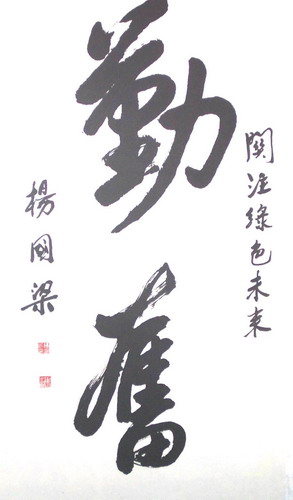 關注綠色未來
勤奮
楊國梁